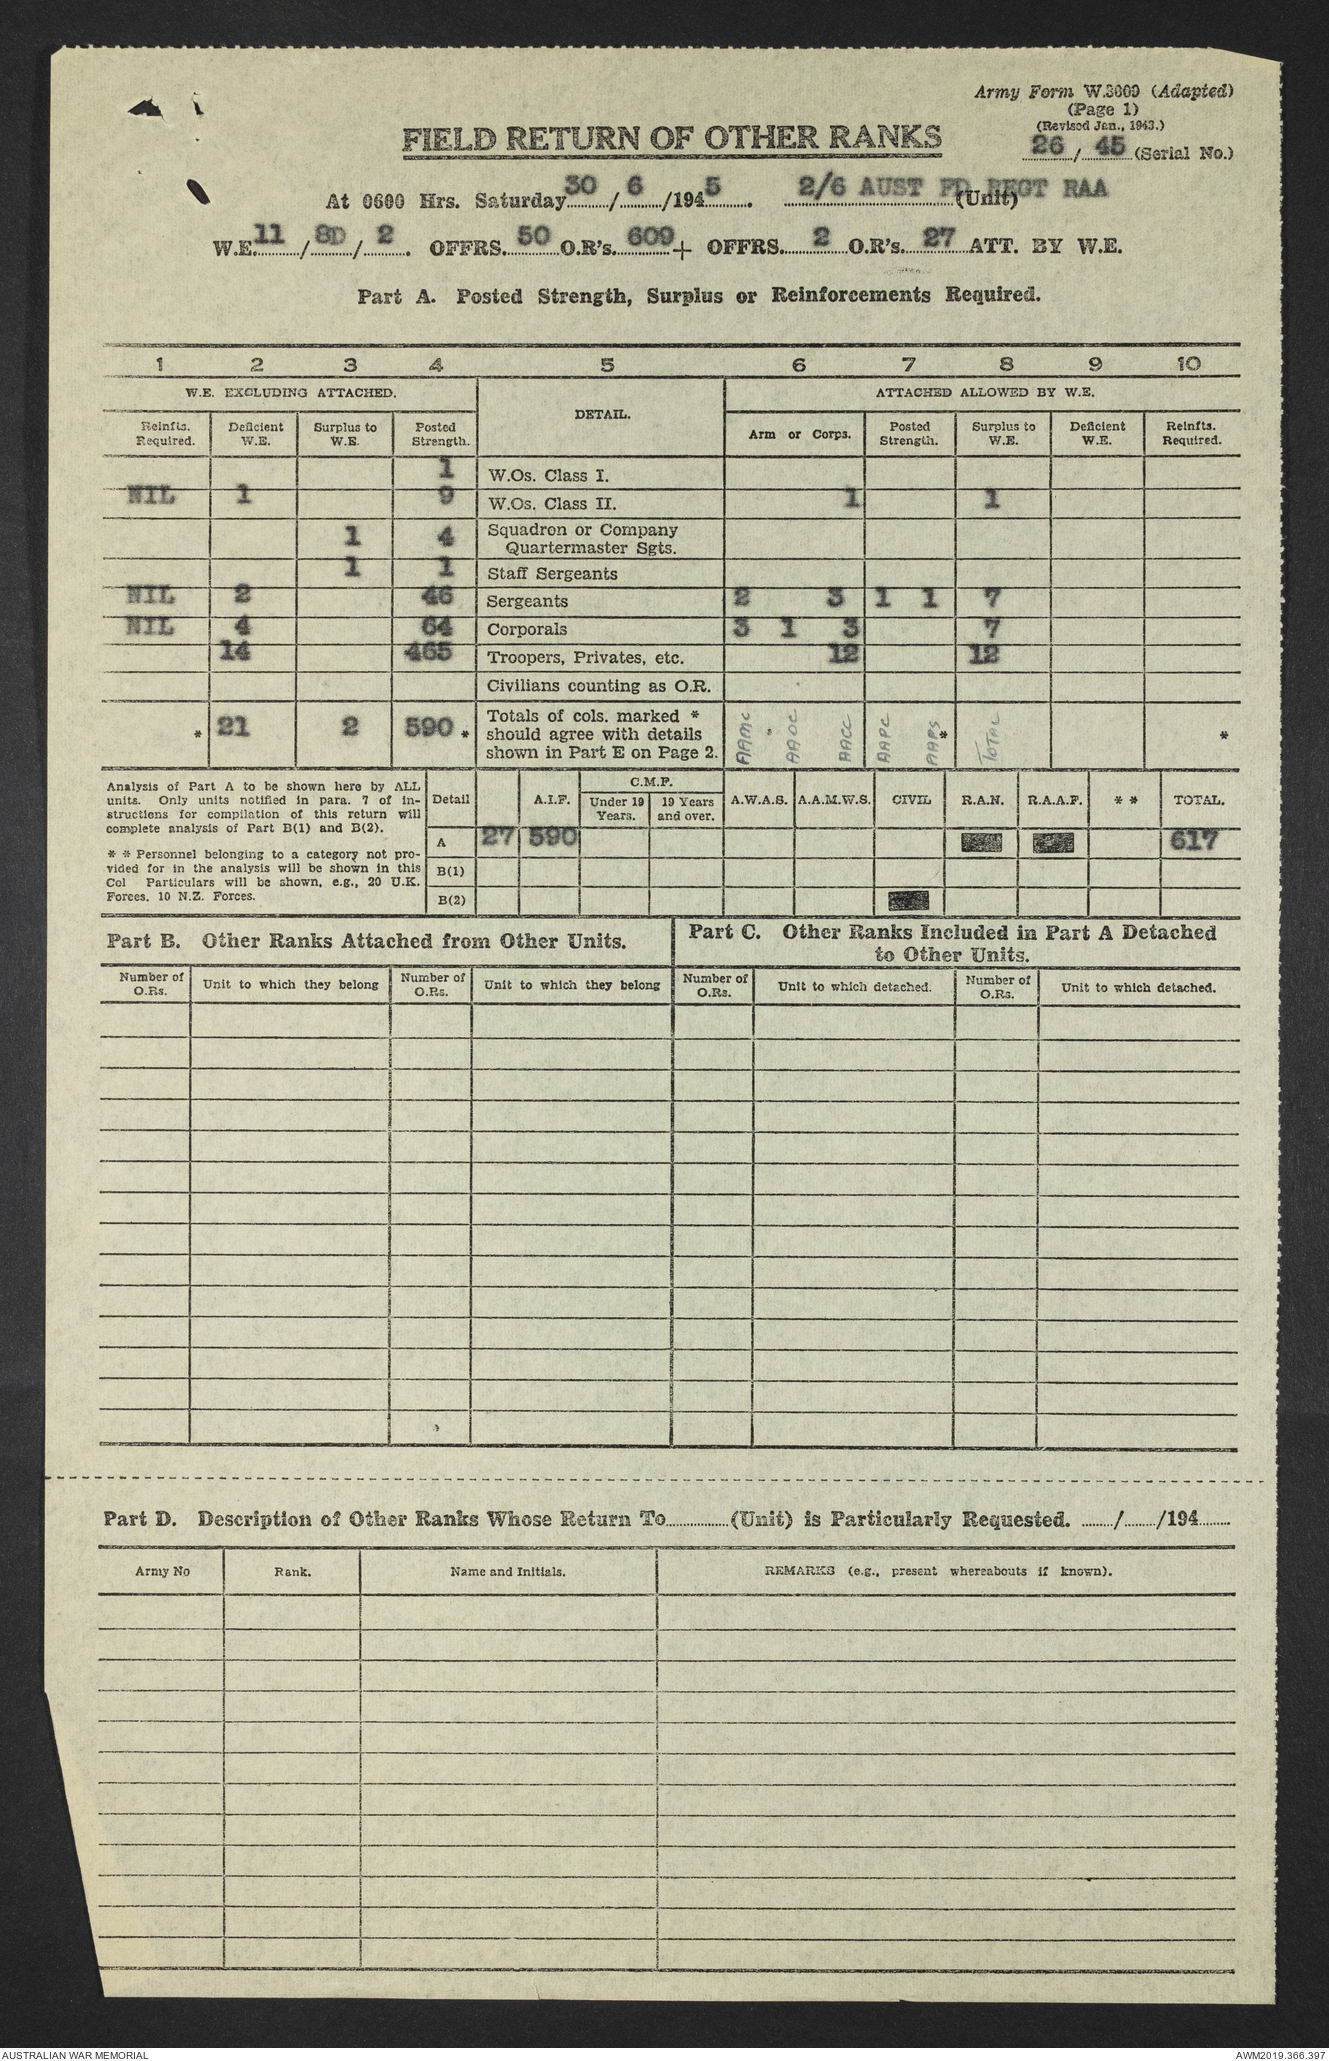 Army Form W.3009 (Adapted)
(Page 1)
(Revised Jan., 1943.)
26 / 45 (Serial No.)
FIELD RETURN OF OTHER RANKS
At 0600 Hrs. Saturday 30 / 6 /194 5 . 2/6 AUST FD REGT RAA (Unit)
W.E. 11 / 8D / 2 . OFFRS. 50 O.R's. 609 + OFFRS. 2 O.R's. 27 ATT. BY W.E.
Part A. Posted Strength, Surplus or Reinforcements Required.
1 2 3 4 5 6 7 8 9 10
W.E. EXCLUDING ATTACHED. DETAIL. ATTACHED ALLOWED BY W.E.
Reinfts. Required. Deficient W.E. Surplus to W.E. Posted Strength. Arm or Corps. Posted Strength. Surplus to W.E. Deficient W.E. Reinfts. Required.
1 W.Os. Class I.
NIL 1 9 W.Os. Class II. 1 1
1 4 Squadron or Company
Quartermaster Sgts.
1 1 Staff Sergeants
NIL 2 46 Sergeants 2 3 1 1 7
NIL 4 64 Corporals 3 1 3 7
14 465 Troopers, Privates, etc. 12 12
Civilians counting as O.R.
* 21 2 590 * Totals of cols. marked *
should agree with details
shown in Part E on Page 2.
AAMC AAOC AACC AAPC AAPS * TOTAL *
Analysis of Part A to be shown here by ALL
units. Only units notified in para. 7 of in-
structions for compilation of this return will
complete analysis of Part B(1) and B(2).
* * Personnel belonging to a category not pro-
vided for in the analysis will be shown in this
Col Particulars will be shown, e.g., 20 U.K.
Forces. 10 N.Z. Forces.
Detail A.I.F. C.M.F. A.W.A.S. A.A.M.W.S. CIVIL R.A.N. R.A.A.F. * * TOTAL.
Under 19 Years. 19 Years and over.
A 27 590 617
B(1)
B(2)
Part B. Other Ranks Attached from Other Units.
Part C. Other Ranks Included in Part A Detached
to Other Units.
Number of O.Rs. Unit to which they belong Number of O.Rs. Unit to which they belong Number of O.Rs. Unit to which detached. Number of O.Rs. Unit to which detached.
Part D. Description of Other Ranks Whose Return To (Unit) is Particularly Requested. / /194
Army No Rank. Name and Initials. REMARKS (e.g., present whereabouts if known).
AUSTRALIAN WAR MEMORIAL
AWM2019.366.397